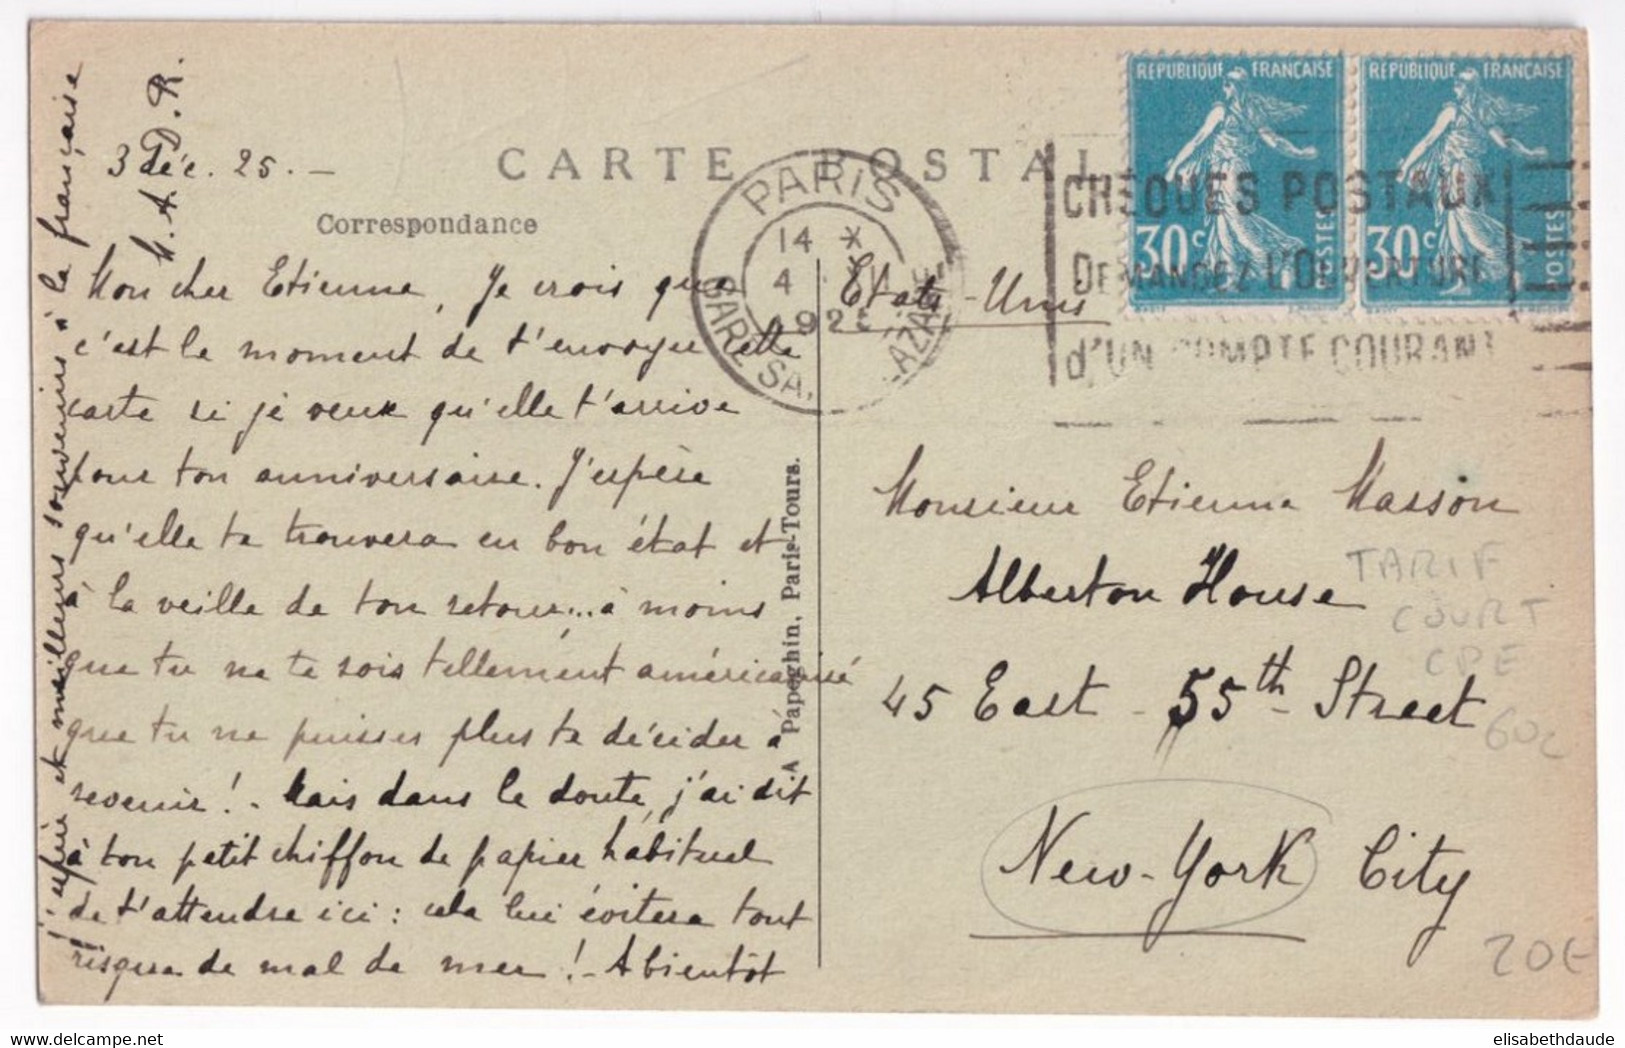 3 Déc. 25. —
CARTE POSTAL
Correspondance
Mon cher Etienne, Je crois que
c'est le moment de t'envoyer cette
carte si je veux qu'elle t'arrive
pour ton anniversaire. J'espère
qu'elle te trouvera en bon état et
à la veille de ton retour... à moins
que tu ne te sois tellement américanisé
que tu ne puisses plus te décider à
revenir! - Mais dans le doute, j'ai dit
à ton petit chiffon de papier habituel
de t'attendre ici : cela lui évitera tout
risque de mal de mer! - A bientôt
j'espère et meilleurs souvenirs à la française
M. A. D. R.
A Papeghin, Paris-Tours.
PARIS
14 *
4
192
GARE ST LAZARE
RÉPUBLIQUE FRANÇAISE
30c
POSTES
RÉPUBLIQUE FRANÇAISE
30c
POSTES
CHEQUES POSTAUX
DEMANDEZ L'OUVERTURE
d'UN COMPTE COURANT
Etats-Unis
Monsieur Etienne Masson
Alberton House
45 East - 55th - Street
New-York City
TARIF
COURT
CPE
60c
20€
elisabethdaude